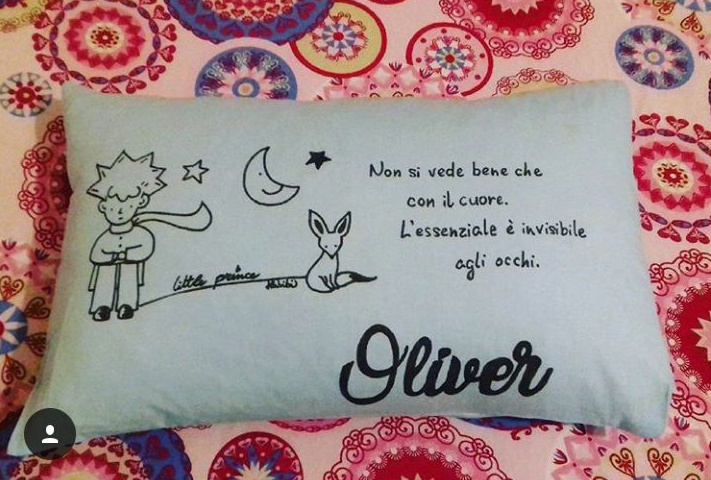 Non si vede bene che
con il cuore.
L'essenziale è invisibile
agli occhi.
little prince
Oliver